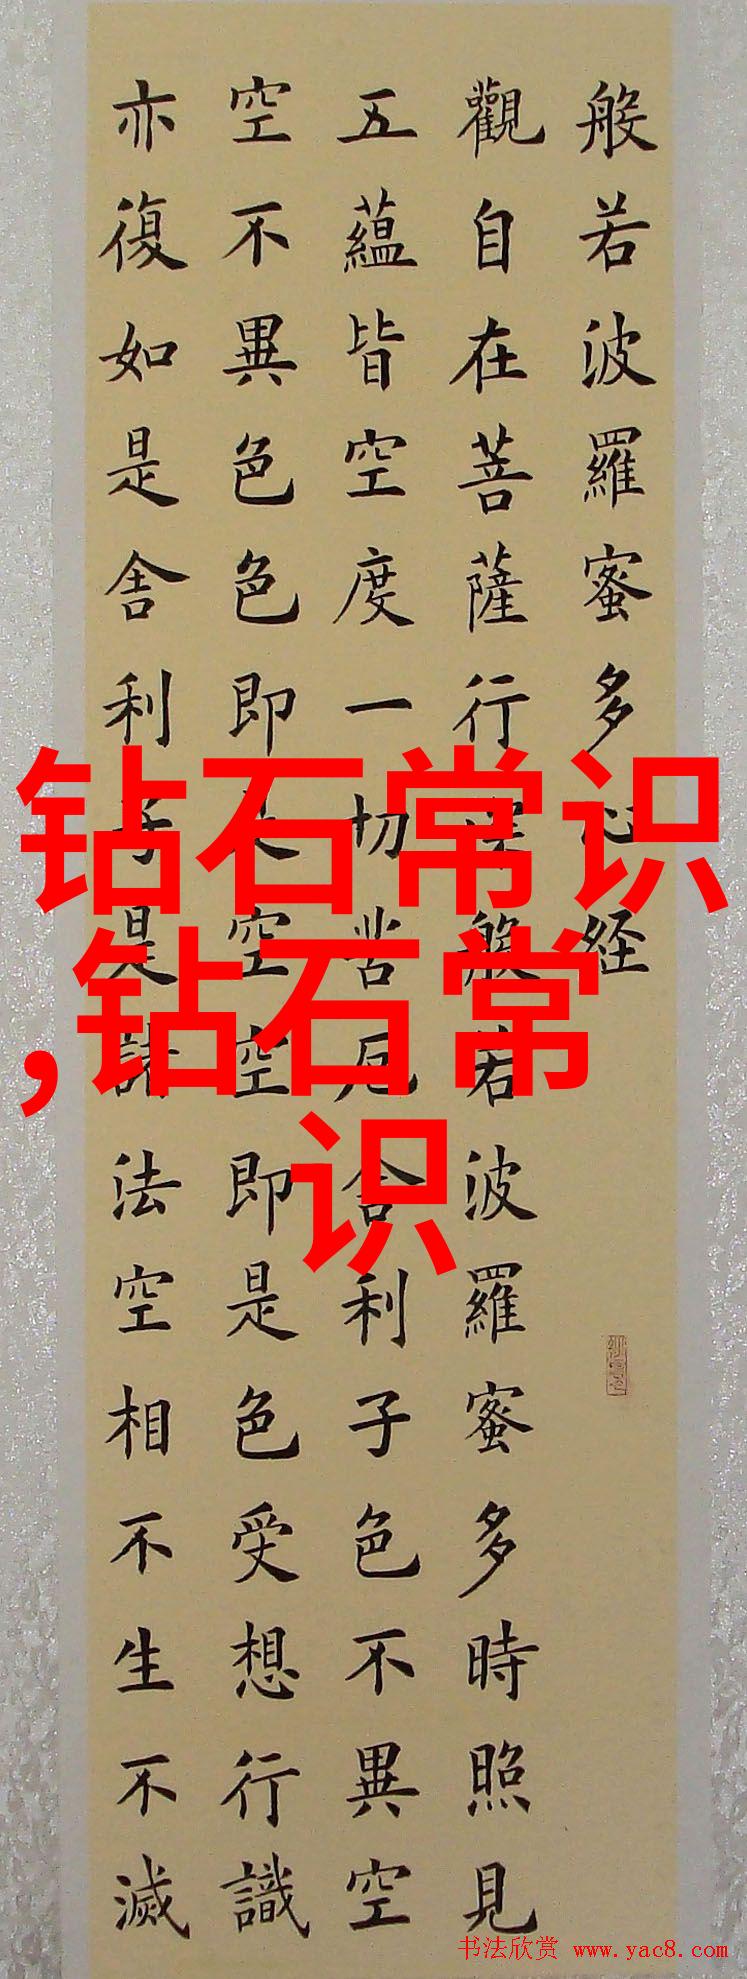 般若波羅蜜多心経
觀自在菩薩行般若波羅蜜多時照見
五蘊皆空度一切苦厄舍利子色不異空
空不異色色即空空即是色受想行識
亦復如是舍利子是諸法空相不生不滅
钻石常识
,钻石常
识
书法欣赏 www.yac8.com